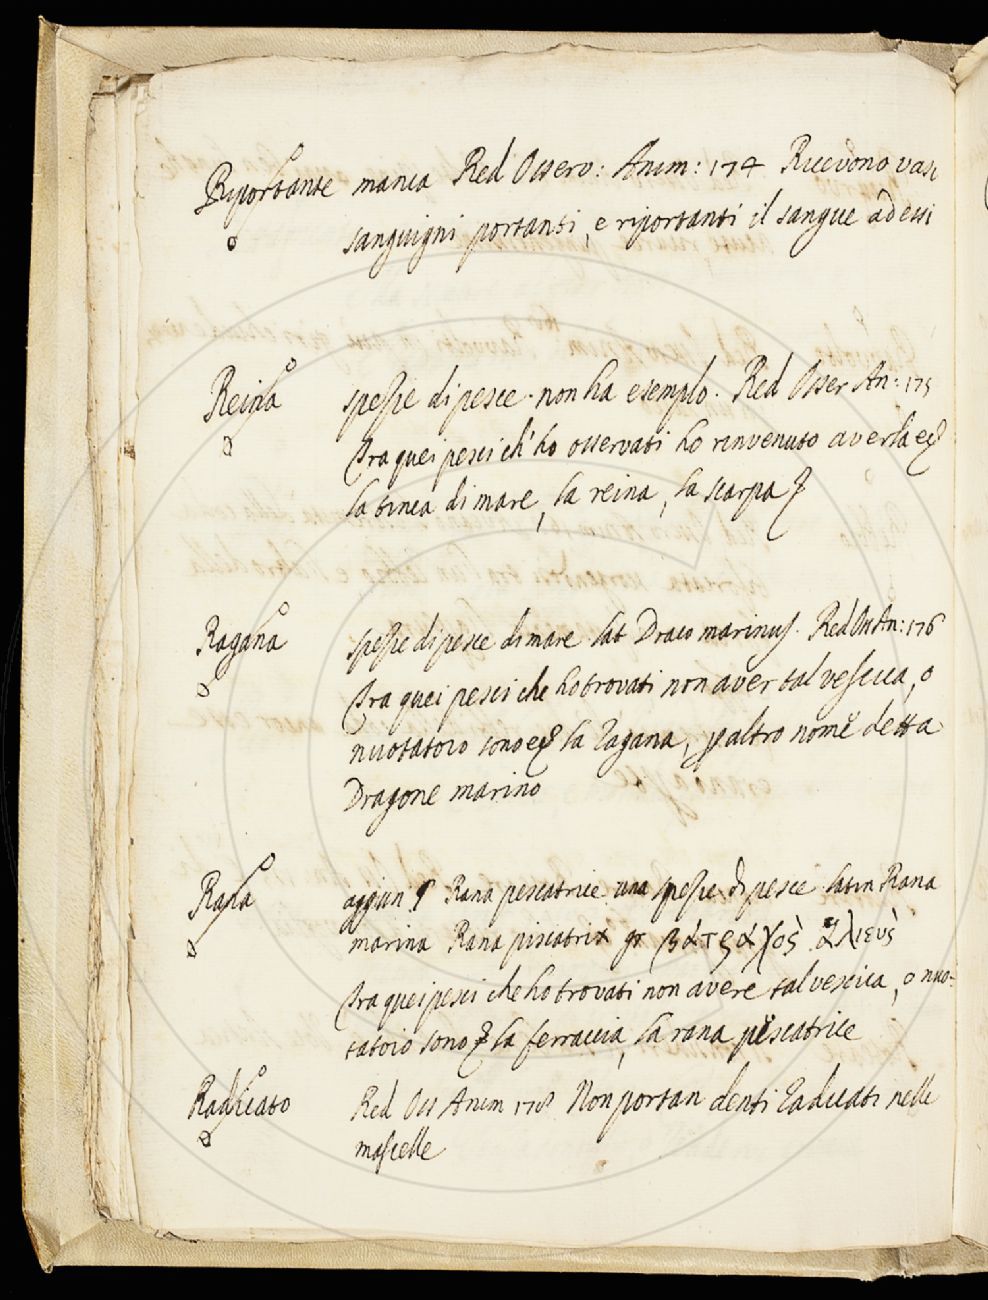 Riportante manca Red Osserv: Anim: 174 Ricevono vasi
sanguigni portanti, e riportanti il sangue ad essi
Reina spezie di pesce. non ha esempio. Red Osser An: 175
Tra quei pesci ch' ho osservati ho rinvenuto averla
la tinca di mare, la reina, la scarpa
Ragana spezie di pesce di mare lat Draco marinus. Red Oss An: 176
Tra quei pesci che ho trovati non aver tal vescica, o
nuotatoio sono la ragana, altro nome detta
Dragone marino
Rana aggiun Rana pescatrice una spezie di pesce latin Rana
marina Rana piscatrix gr βάτραχος ἁλιεύς
Tra quei pesci che ho trovati non avere tal vescica, o nuo-
tatoio sono la ferraccia, la rana pescatrice
Radicato Red Oss Anim 178 Non portan denti radicati nelle
mascelle